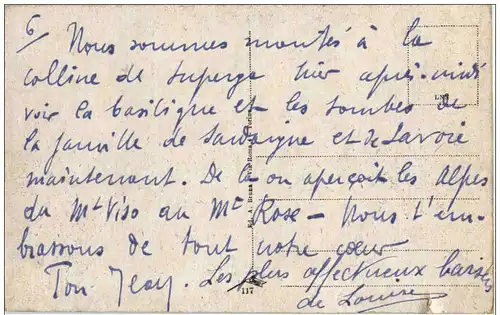 6/
Nous sommes montés à la
colline de Superga hier après-midi
voir la basilique et les tombes de
la famille de Sardaigne et de Savoie
maintenant. De là on aperçoit les Alpes
du Mt Viso au Mt Rose – Nous t'em-
brassons de tout notre cœur
Ton Jean. Les plus affectueux baisers
de Louise
117